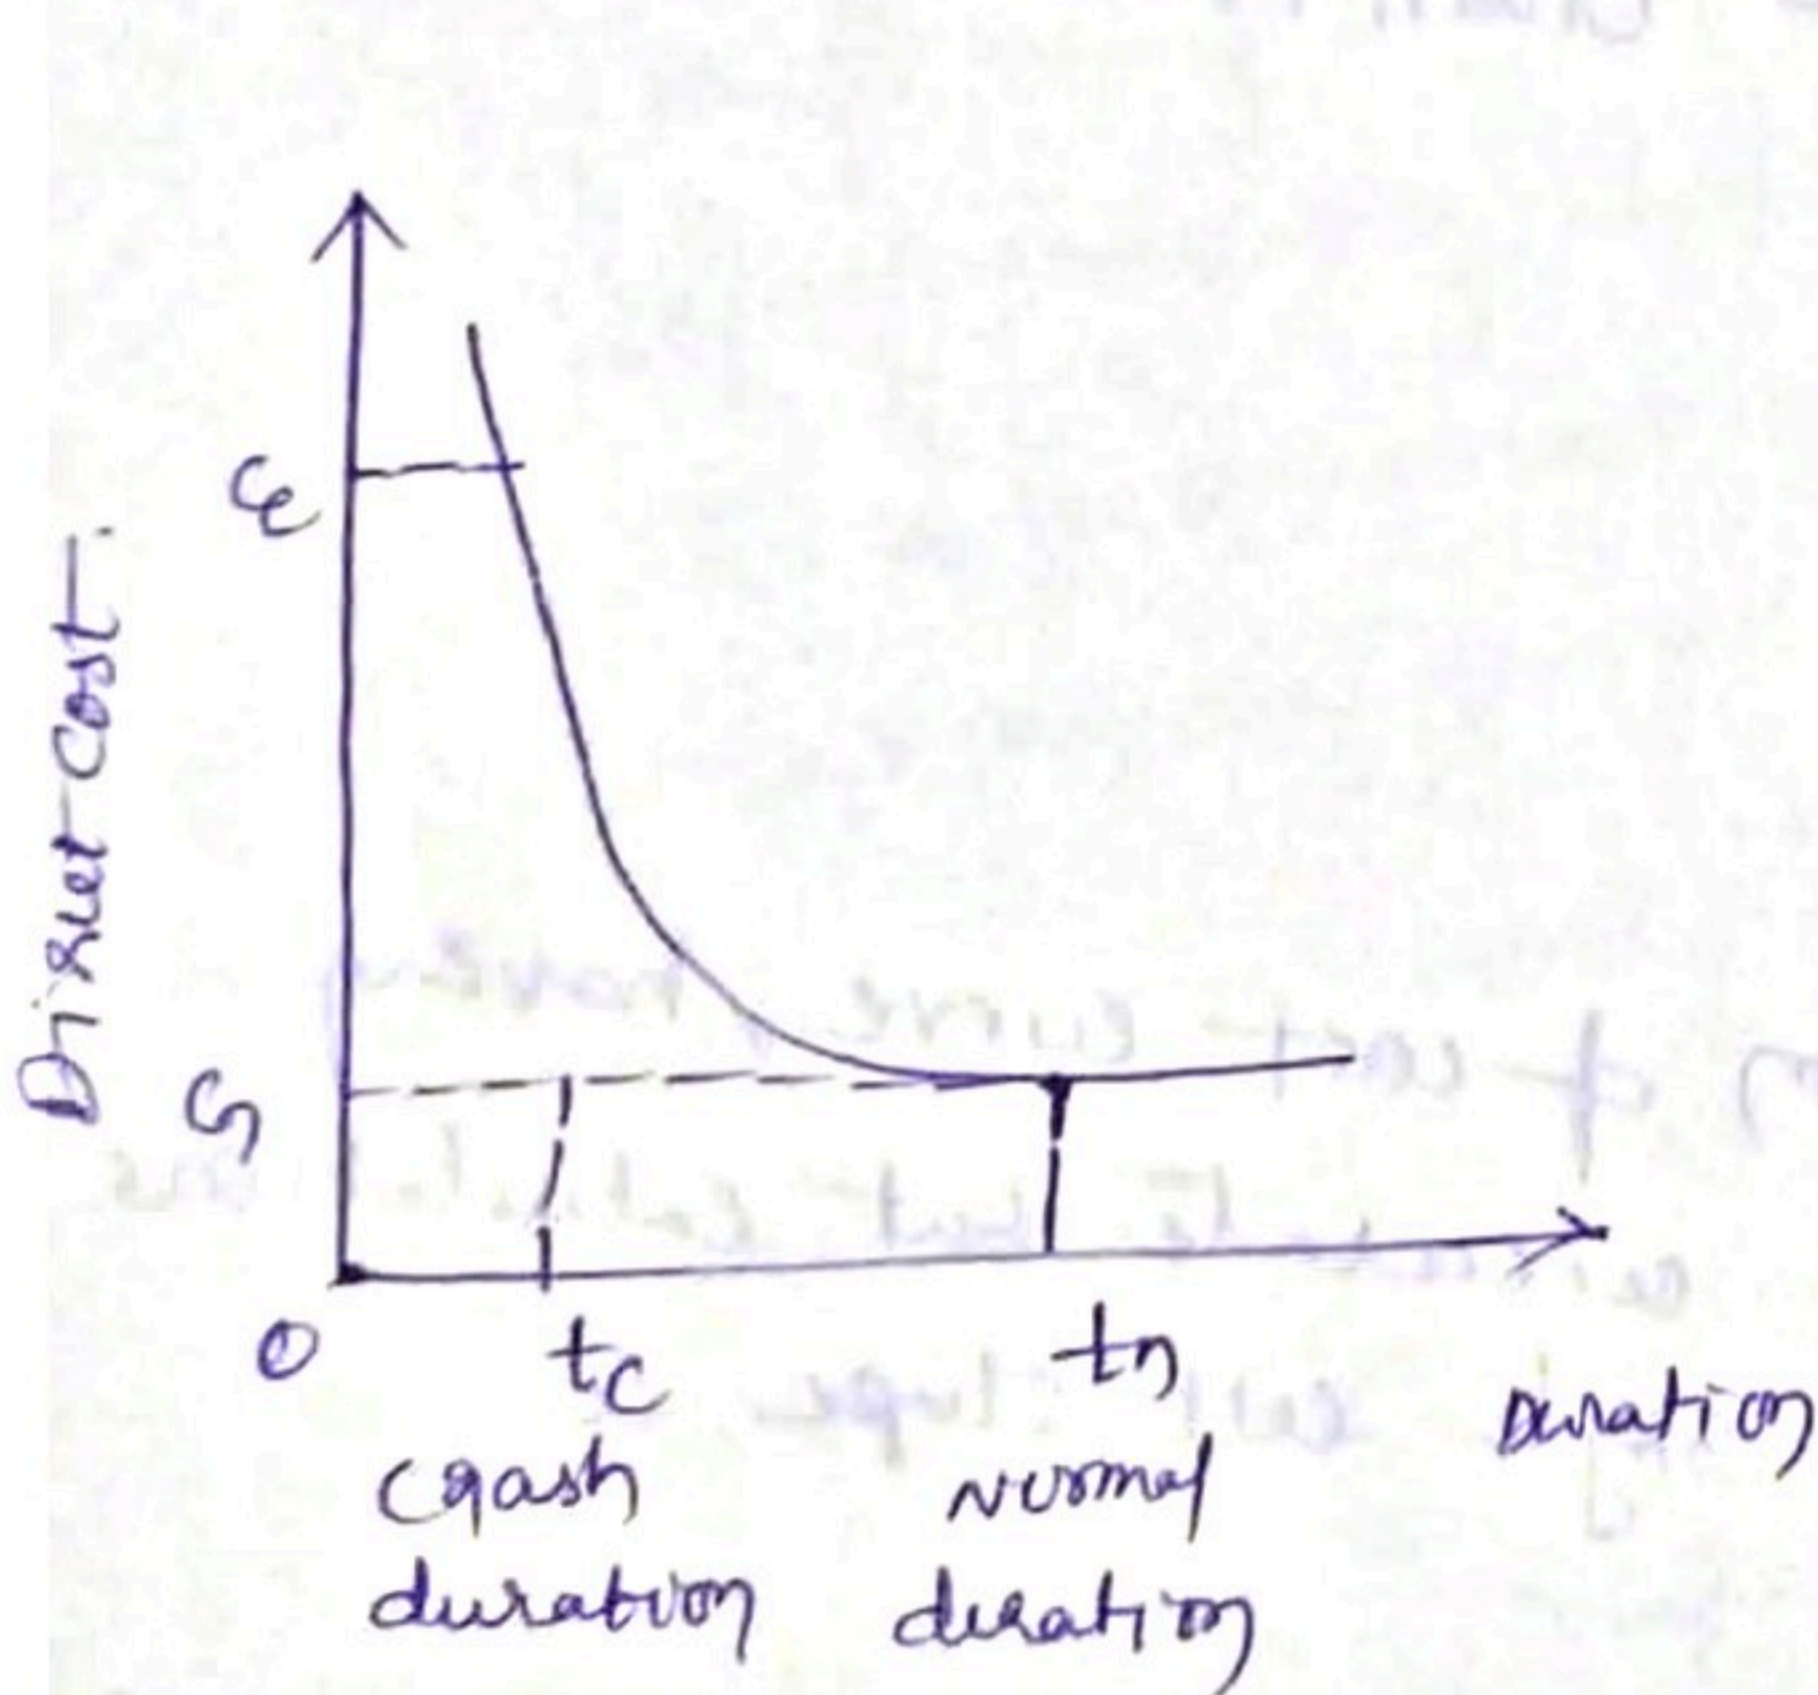 Direct cost.
Cc
Cn
0
tc
tn
Duration
Crash
duration
Normal
duration